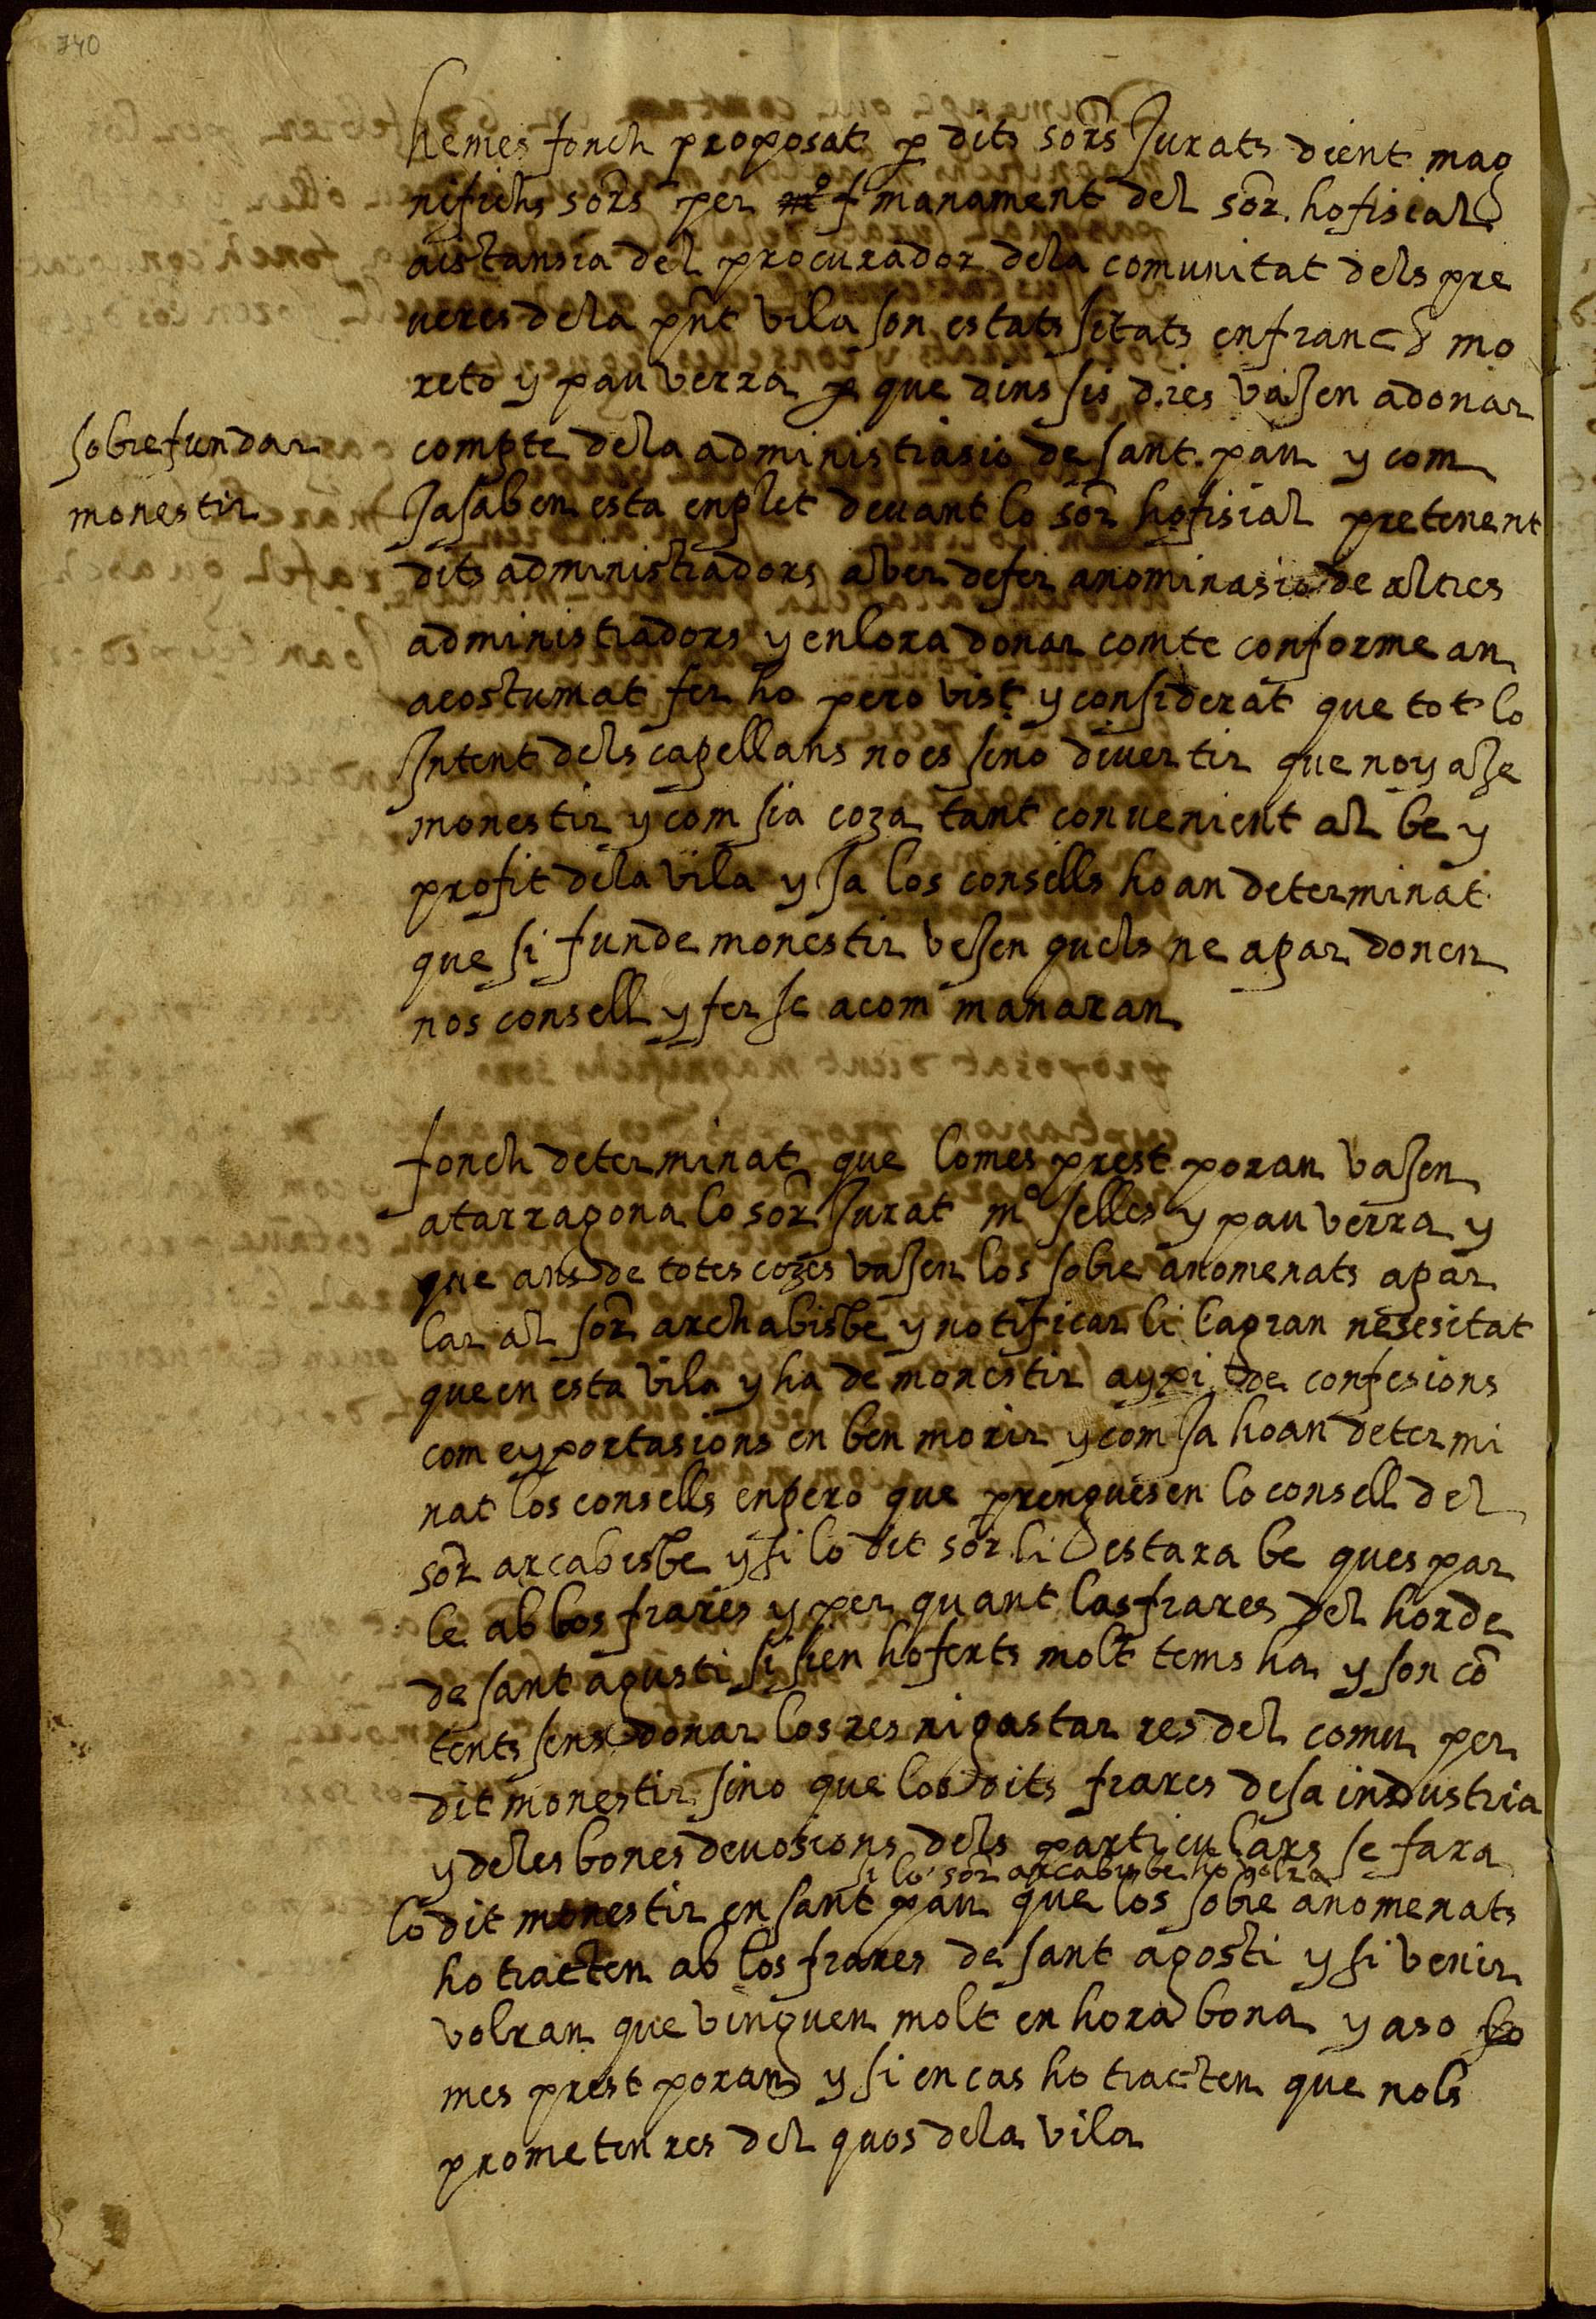 740
hemes fonch proposat p dits sors Jurats dient mag
nifichs sors per manament del sor. hofisial
aistansia del procurador dela comunitat dels pre
ueres dela pnt vila son estats sitats en franc mo
reto y pau verra p que dins sis dies vasen adonar
sobre fundar
monestir
compte dela administrasio de sant pau y com
Jasaben esta enplet deuant lo sor hofisial pretenent
dits administradors aber defer anominasio de altres
administradors y enlora donar comte conforme an
acostumat fer ho pero vist y considerat que tot lo
Intent dels capellans no es sino divertir que noy aje
monestir y com sia coza tant convenient al be y
profit dela vila y Ja los consells ho an determinat
que si funde monestir vejen quels ne apar donen
nos consell y fer se a com manaran
fonch determinat que lomes prest poran vajen
atarragona lo sor Jurat mo selles y pau verra y
que ans de totes cozes vajen los sobre anomenats apar
lar al sor archabisbe y notificar li lagran nesesitat
que en esta vila y ha de monestir axi de confesions
com exportasions en ben morir y com Ja hoan determi
nat los consells enpero que prenguesen lo consell del
sor arcabisbe y si lo dit sor li estara be ques par
le ab los frares y per quant los frares del horde
de sant agusti si sien hoferts molt tems ha y son co
tents sens donar los res ni gastar res del comu per
dit monestir sino que los dits frares desa industria
y deles bones deuosions dels particulars se fara
si lo sor arcabisbe ho volra
lo dit monestir en sant pau que los sobre anomenats
ho tracten ab los frares de sant agosti y si venir
volran que vinguen molt en hora bona y aso lo
mes prest poran y si en cas ho tracten que nols
prometen res del quos dela vila